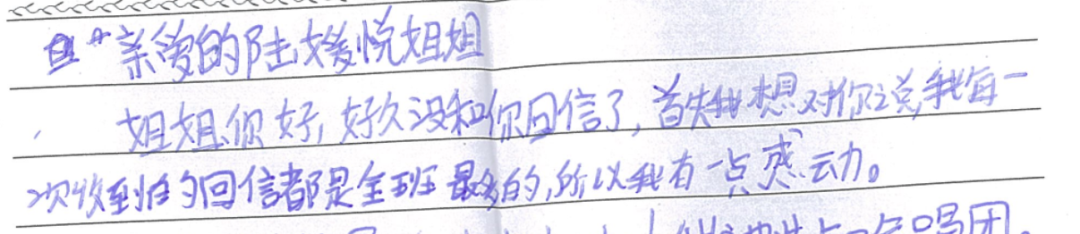 亲爱的陆媛悦姐姐
姐姐你好,好久没和你回信了,首先我想对你说,我每一
次收到你的回信都是全班最多的,所以我有一点感动。
唱团。